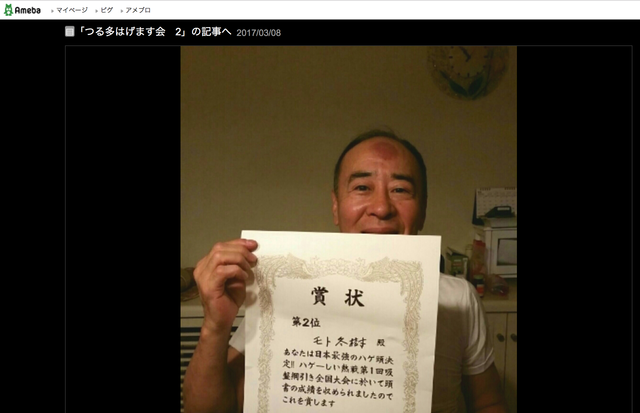 Ameba
マイページ
ピグ
アメブロ
「つる多はげます会 2」の記事へ 2017/03/08
賞状
第2位
殿
あなたは日本最強のハゲ頭決
定!!ハゲーしい熱戦第1回吸
盤綱引き全国大会に於いて頭
書の成績を収められましたので
これを賞します